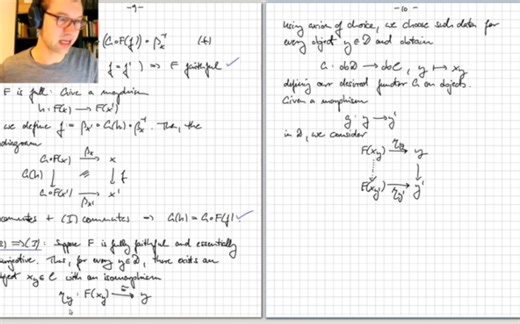 -9-
(G∘F(f)) ∘ β_x^{-1} (+)
f = f' ) ⟹ F faithful ✓
F is full: Give a morphism
h: F(x) → F(x')
we define f := β_{x'} ∘ G(h) ∘ β_x^{-1}. Then, the
diagram
G∘F(x) —β_x→ x
G(h) ↓ ↓ f
G∘F(x') —β_{x'}→ x'
commutes + (I) commutes ⟹ G(h) = G∘F(f) ✓
⟹(1): Suppose F is fully faithful and essentially
surjective. Then, for every y∈D, there exists an
object x_y ∈ C with an isomorphism
η_y: F(x_y) —≅→ y
-10-
Using axiom of choice, we choose such data for
every object y∈D and obtain
G: obD → obC, y ↦ x_y
defining our desired functor G on objects.
Given a morphism
g: y → y'
in D, we consider
F(x_y) —η_y→ y
↓ ↓
F(x_{y'}) —η_{y'}→ y'